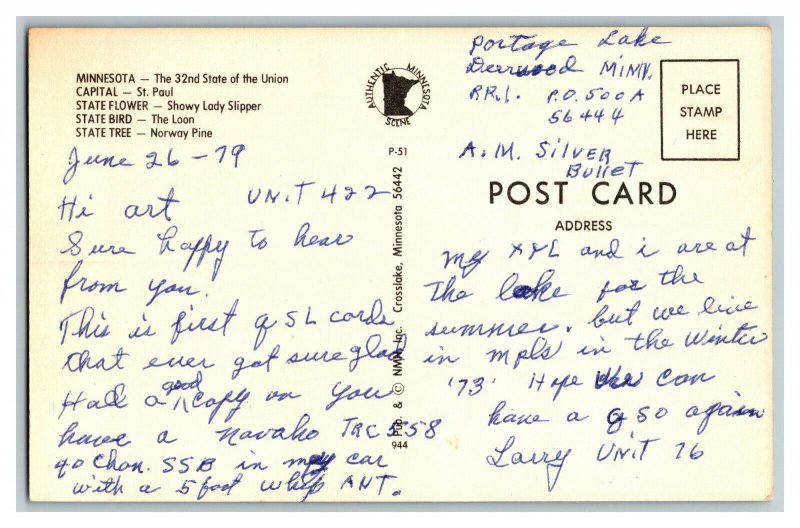 MINNESOTA — The 32nd State of the Union
CAPITAL — St. Paul
STATE FLOWER — Showy Lady Slipper
STATE BIRD — The Loon
STATE TREE — Norway Pine
June 26 - 79
Hi art UNIT 422
Sure happy to hear
from you.
This is first qSL cards
that ever got sure glad
Had a good copy on you
have a Navaho TRC 558
40 Chan. SSB in my car
with a 5 foot whip ANT.
AUTHENTIC MINNESOTA
SCENE
P-51
Pub. & © NMN Inc. Crosslake, Minnesota 56442
944
Portage Lake
Deerwood MINN.
R.R.1. P.O. 500A
56444
A.M. SILVER
Bullet
PLACE
STAMP
HERE
POST CARD
ADDRESS
my XYL and i are at
The lake for the
summer. but we live
in mpls in the Winter
'73' Hope we can
have a qSO again
Larry UNIT 76